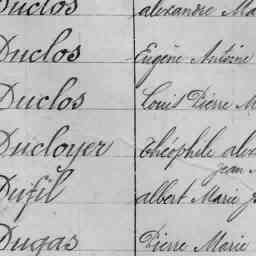 Duclos Alexandre Ma
Duclos Eugène Antoine
Duclos Louis Pierre M
Ducloyer Théophile Alex
Jean
Dufil Albert Marie J
Dugas Pierre Marie